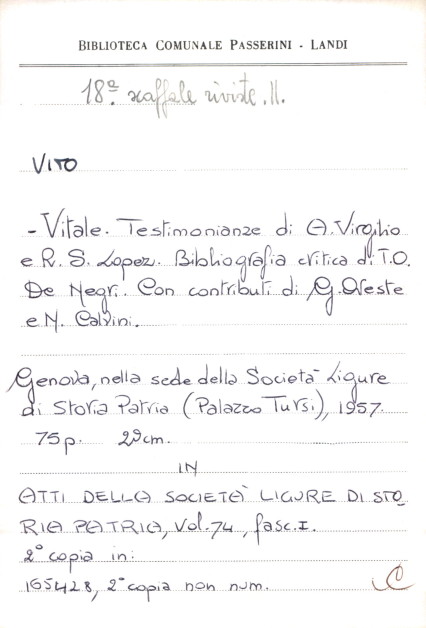 BIBLIOTECA COMUNALE PASSERINI - LANDI
18ª. scaffale riviste. II.
VITO
- Vitale. Testimonianze di A. Virgilio
e R. S. Lopez. Bibliografia critica di T.O.
De Negri. Con contributi di G. Oreste
e N. Calvini.
Genova, nella sede della Società Ligure
di Storia Patria (Palazzo Tursi), 1957.
75 p. 29 cm.
IN
ATTI DELLA SOCIETÀ LIGURE DI STO
RIA PATRIA, Vol. 74, fasc. I.
2° copia in:
165428, 2° copia non num.